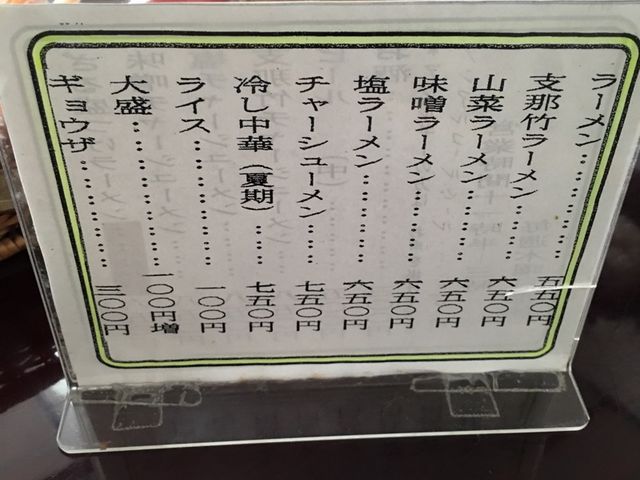 ラーメン……………五五〇円
支那竹ラーメン………六五〇円
山菜ラーメン…………六五〇円
味噌ラーメン…………六五〇円
塩ラーメン……………六五〇円
チャーシューメン……七五〇円
冷し中華(夏期)……七五〇円
ライス…………………一〇〇円
大盛……………………一〇〇円増
ギョウザ………………三〇〇円